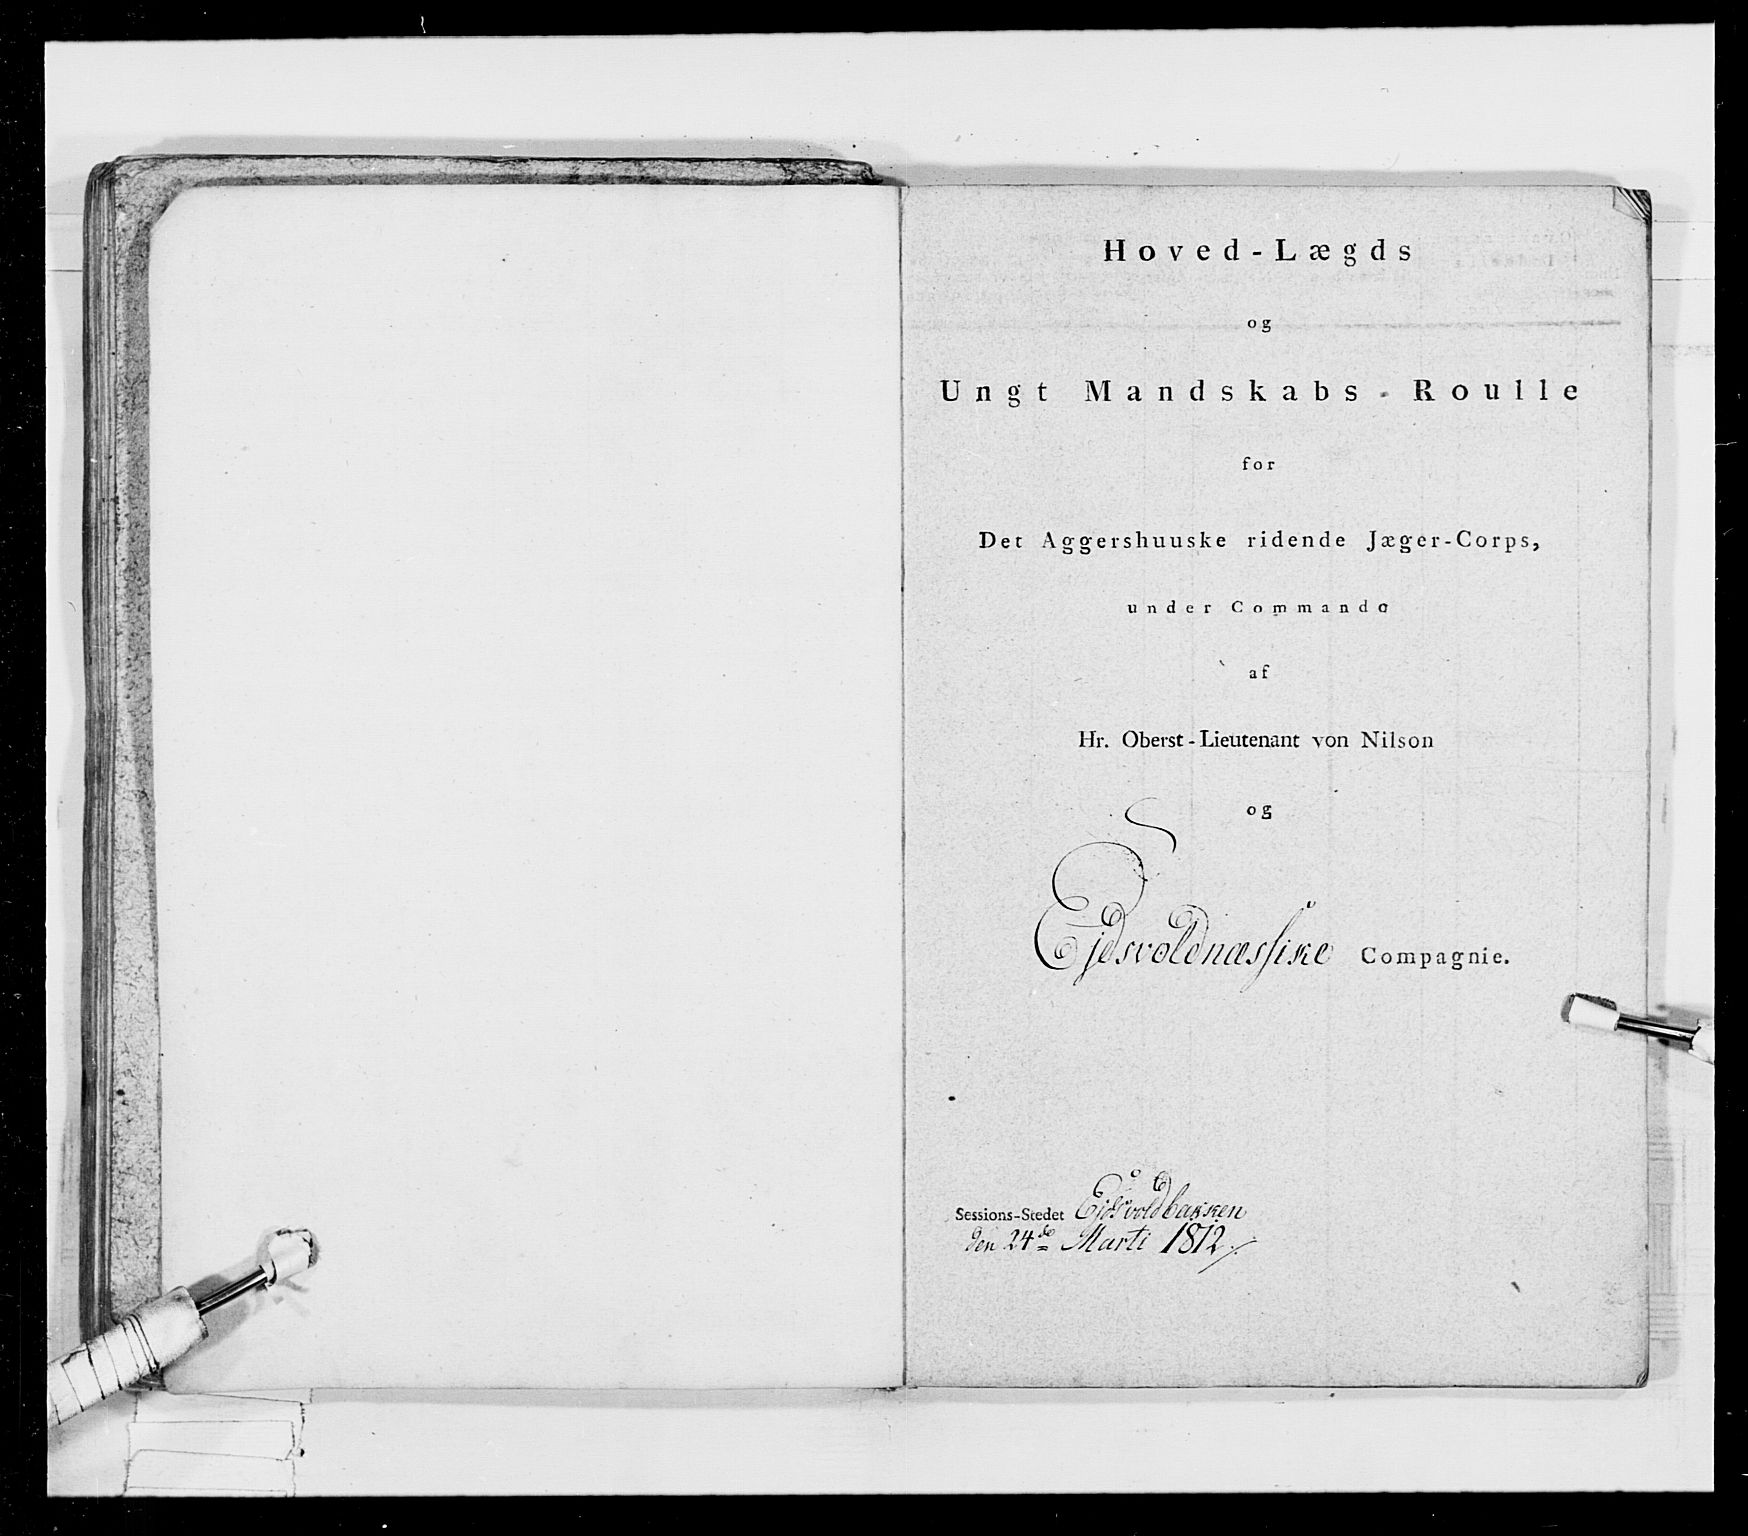 Hoved-Lægds
og
Ungt Mandskabs-Roulle
for
Det Aggershuuske ridende Jæger-Corps,
under Commando
af
Hr. Oberst-Lieutenant von Nilson
og
Ejdsvoldnæssiske Compagnie.
Sessions-Stedet Ejdsvoldbakken
den 24de Marti 1812